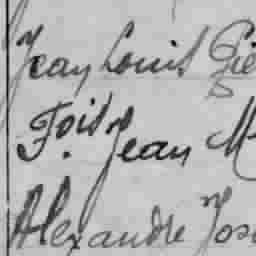 Jean Louis Pie
Fois. Jean M
Alexandre Jos